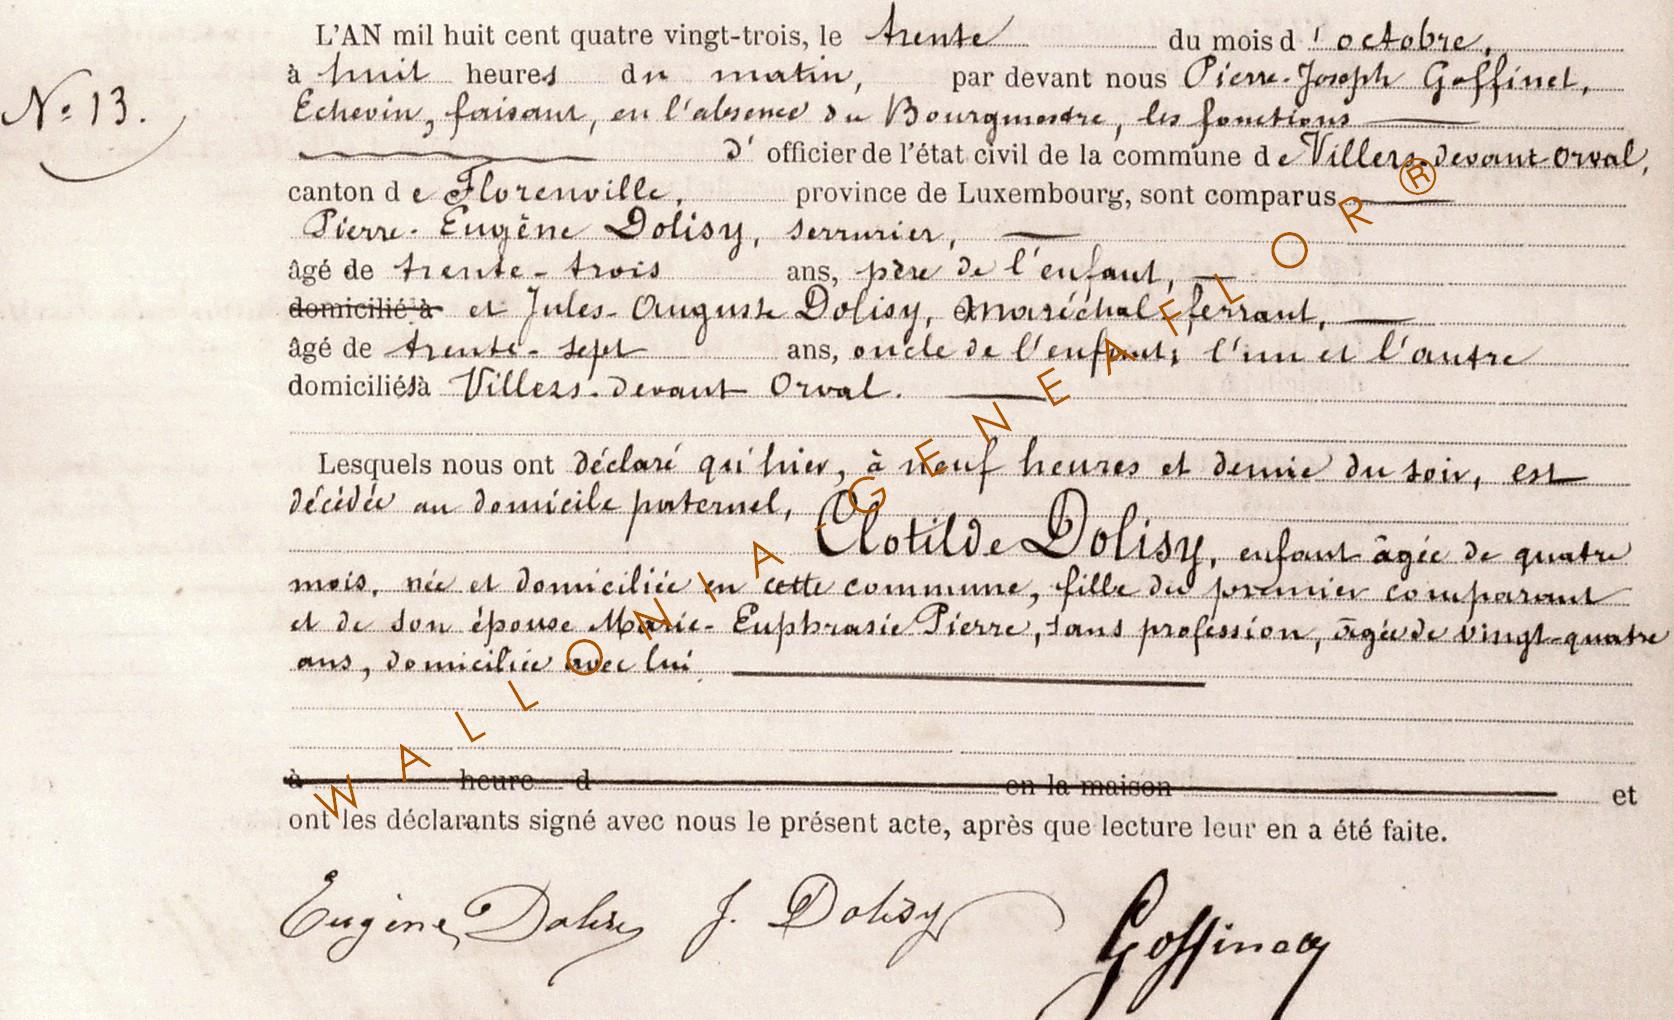 L'AN mil huit cent quatre vingt-trois, le trente du mois d'octobre,
à huit heures du matin, par devant nous Pierre-Joseph Goffinet,
Nº 13.
Echevin, faisant, en l'absence du Bourgmestre, les fonctions
d'officier de l'état civil de la commune de Villers-devant-Orval,
canton de Florenville, province de Luxembourg, sont comparus
Pierre-Eugène Dolisy, serrurier,
âgé de trente-trois ans, père de l'enfant,
domicilié à et Jules-Auguste Dolisy, maréchal-ferrant,
âgé de trente-sept ans, oncle de l'enfant; l'un et l'autre
domiciliés à Villers-devant Orval.
Lesquels nous ont déclaré qu'hier, à neuf heures et demie du soir, est
décédée au domicile paternel,
Clotilde Dolisy, enfant âgée de quatre
mois, née et domiciliée en cette commune, fille du premier comparant
et de son épouse Marie-Euphrasie Pierre, sans profession, âgée de vingt-quatre
ans, domiciliée avec lui.
à heure d en la maison et
ont les déclarants signé avec nous le présent acte, après que lecture leur en a été faite.
Eugène Dolisy J. Dolisy Goffinet
WALLONIA-GENEAFLOR®